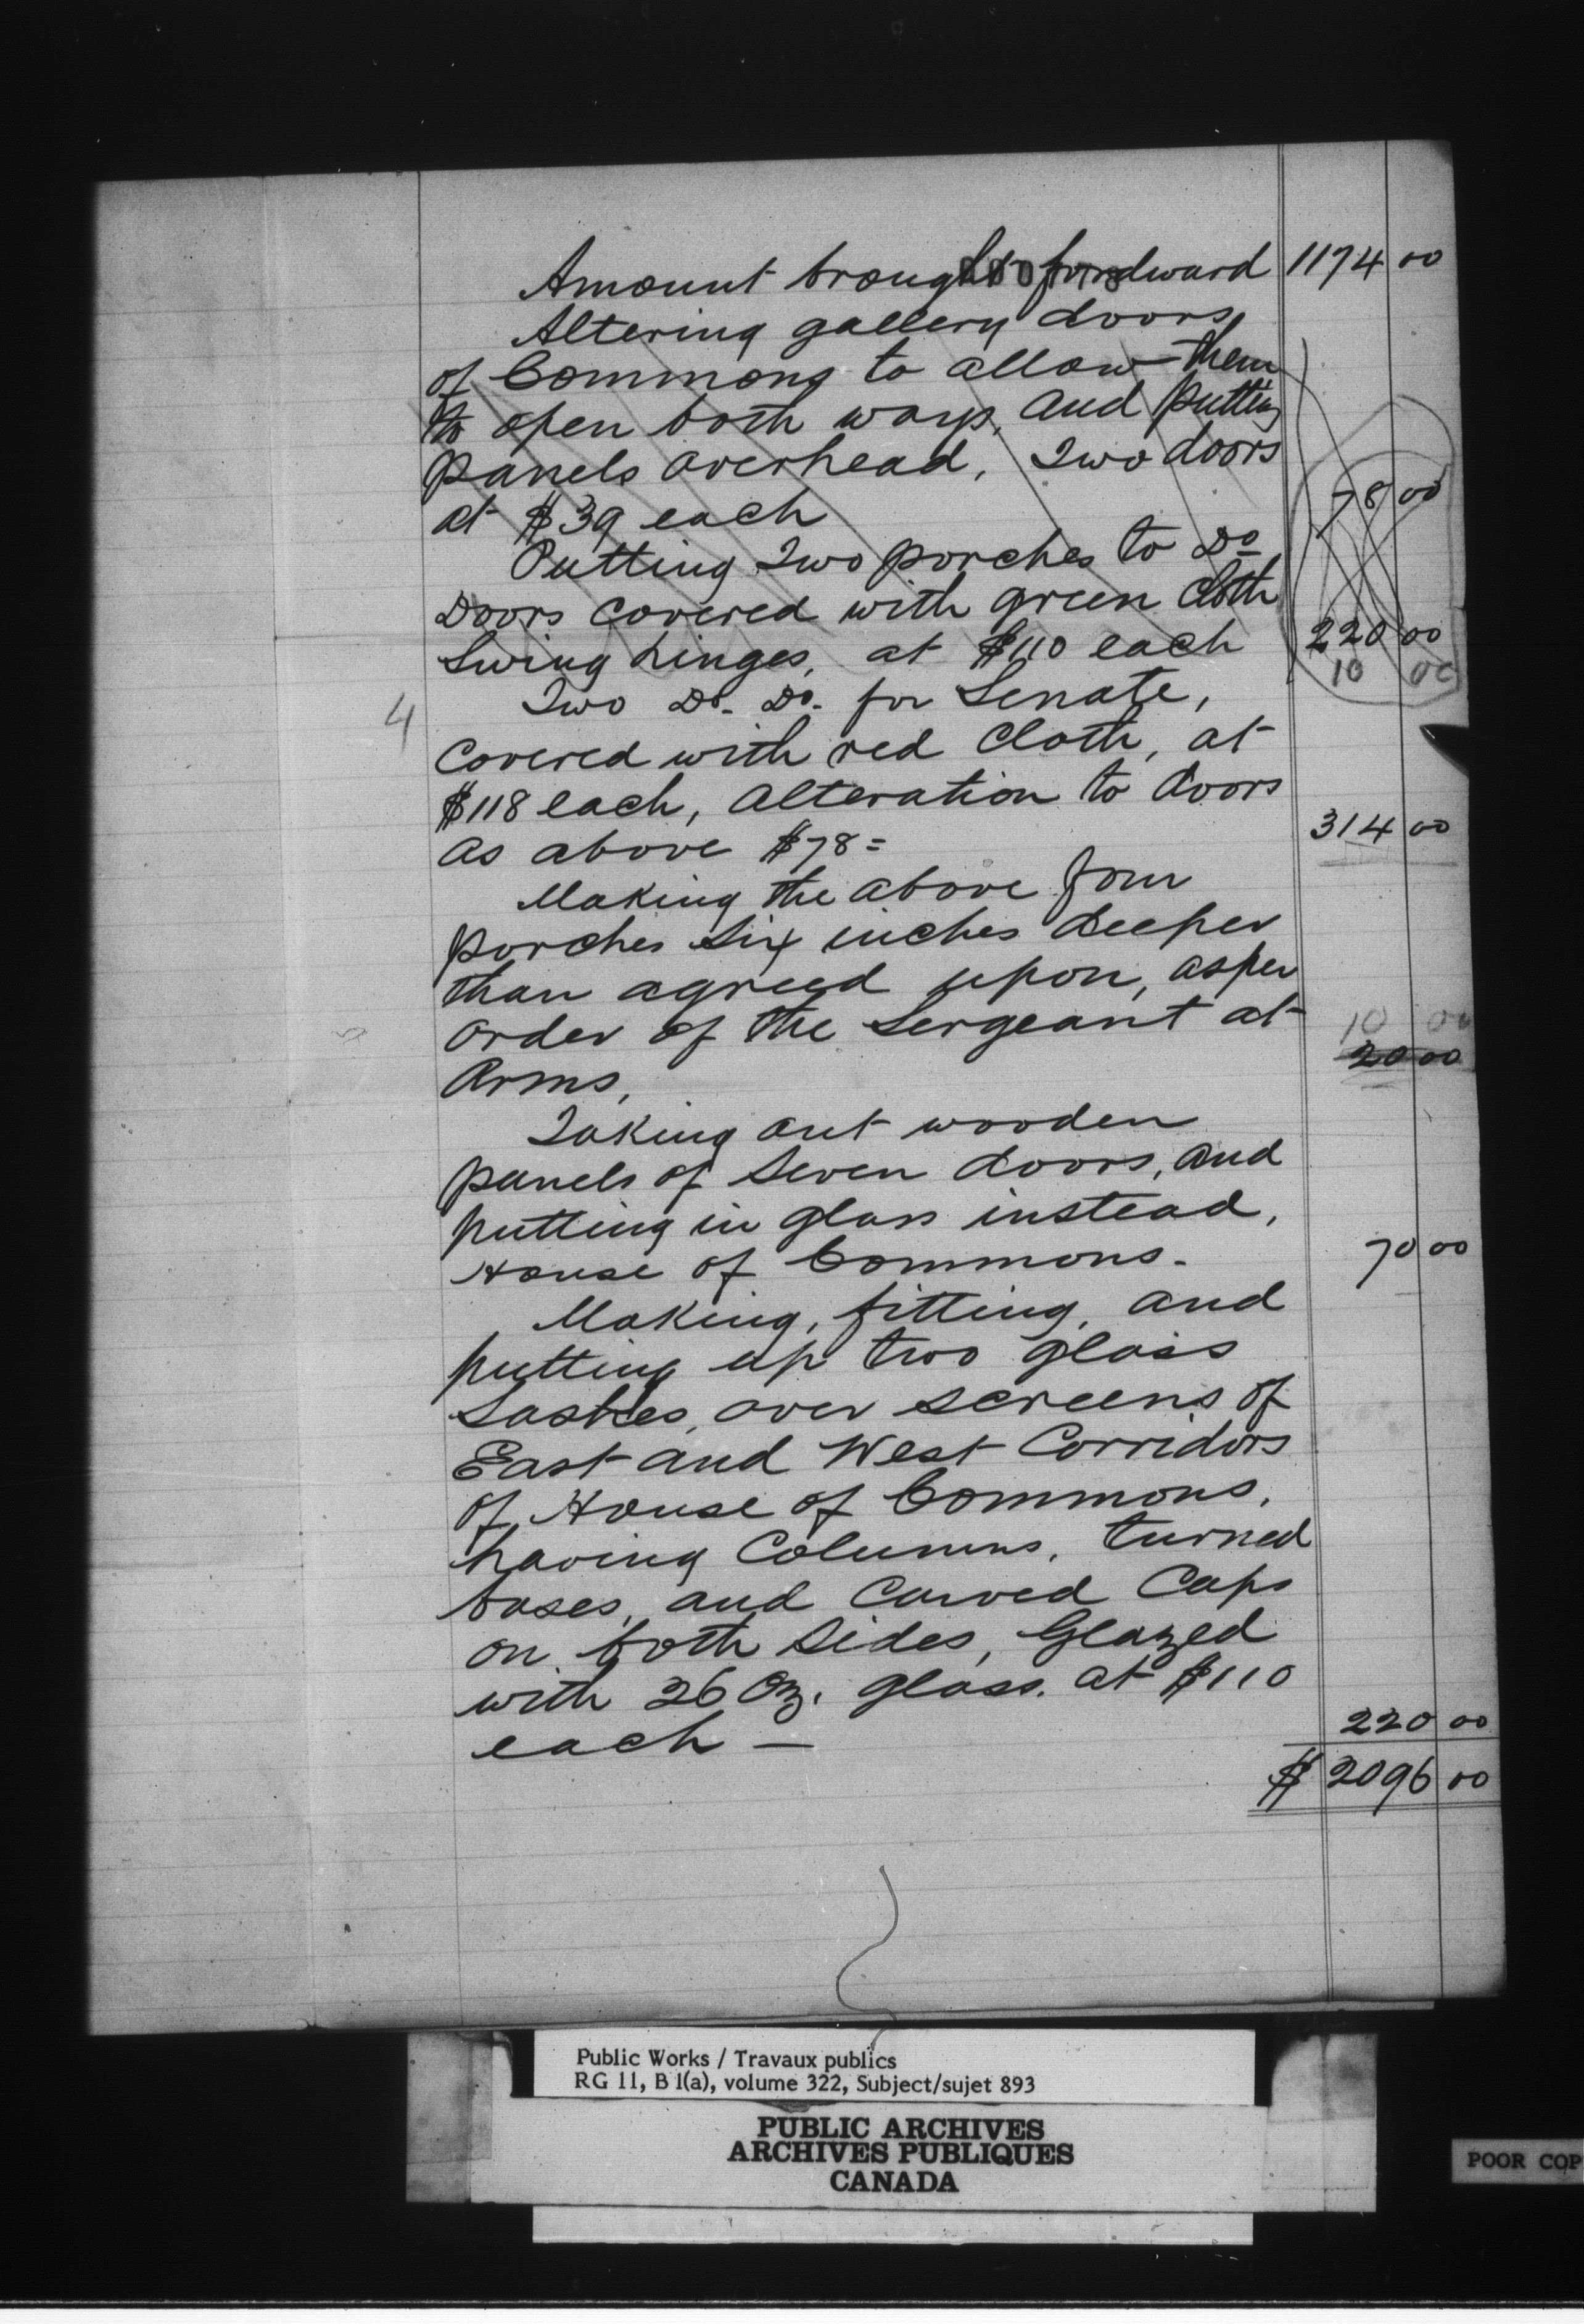 Amount brought fordward 1174 00
Altering gallery doors
of Commons to allow them
to open both ways, and putting
panels overhead, Two doors
at $39 each 78 00
Putting Two porches to Do
Doors covered with green cloth
Swing hinges, at $110 each 220 00
10 00
4 Two Do. Do. for Senate,
covered with red cloth, at
$118 each, alteration to doors
as above $78= 314 00
Making the above four
porches six inches deeper
than agreed upon, as per
order of the Sergeant at 10 00
Arms, 20 00
Taking out wooden
panels of seven doors, and
putting in glass instead,
House of Commons. 70 00
Making, fitting, and
putting up two glass
Sashes, over screens of
East and West Corridors
of House of Commons,
having Columns, turned
bases, and Carved Caps
on both sides, Glazed
with 26 Oz. glass. at $110
each — 220 00
$ 2096 00
Public Works / Travaux publics
RG 11, B 1(a), volume 322, Subject/sujet 893
PUBLIC ARCHIVES
ARCHIVES PUBLIQUES
CANADA
POOR COP